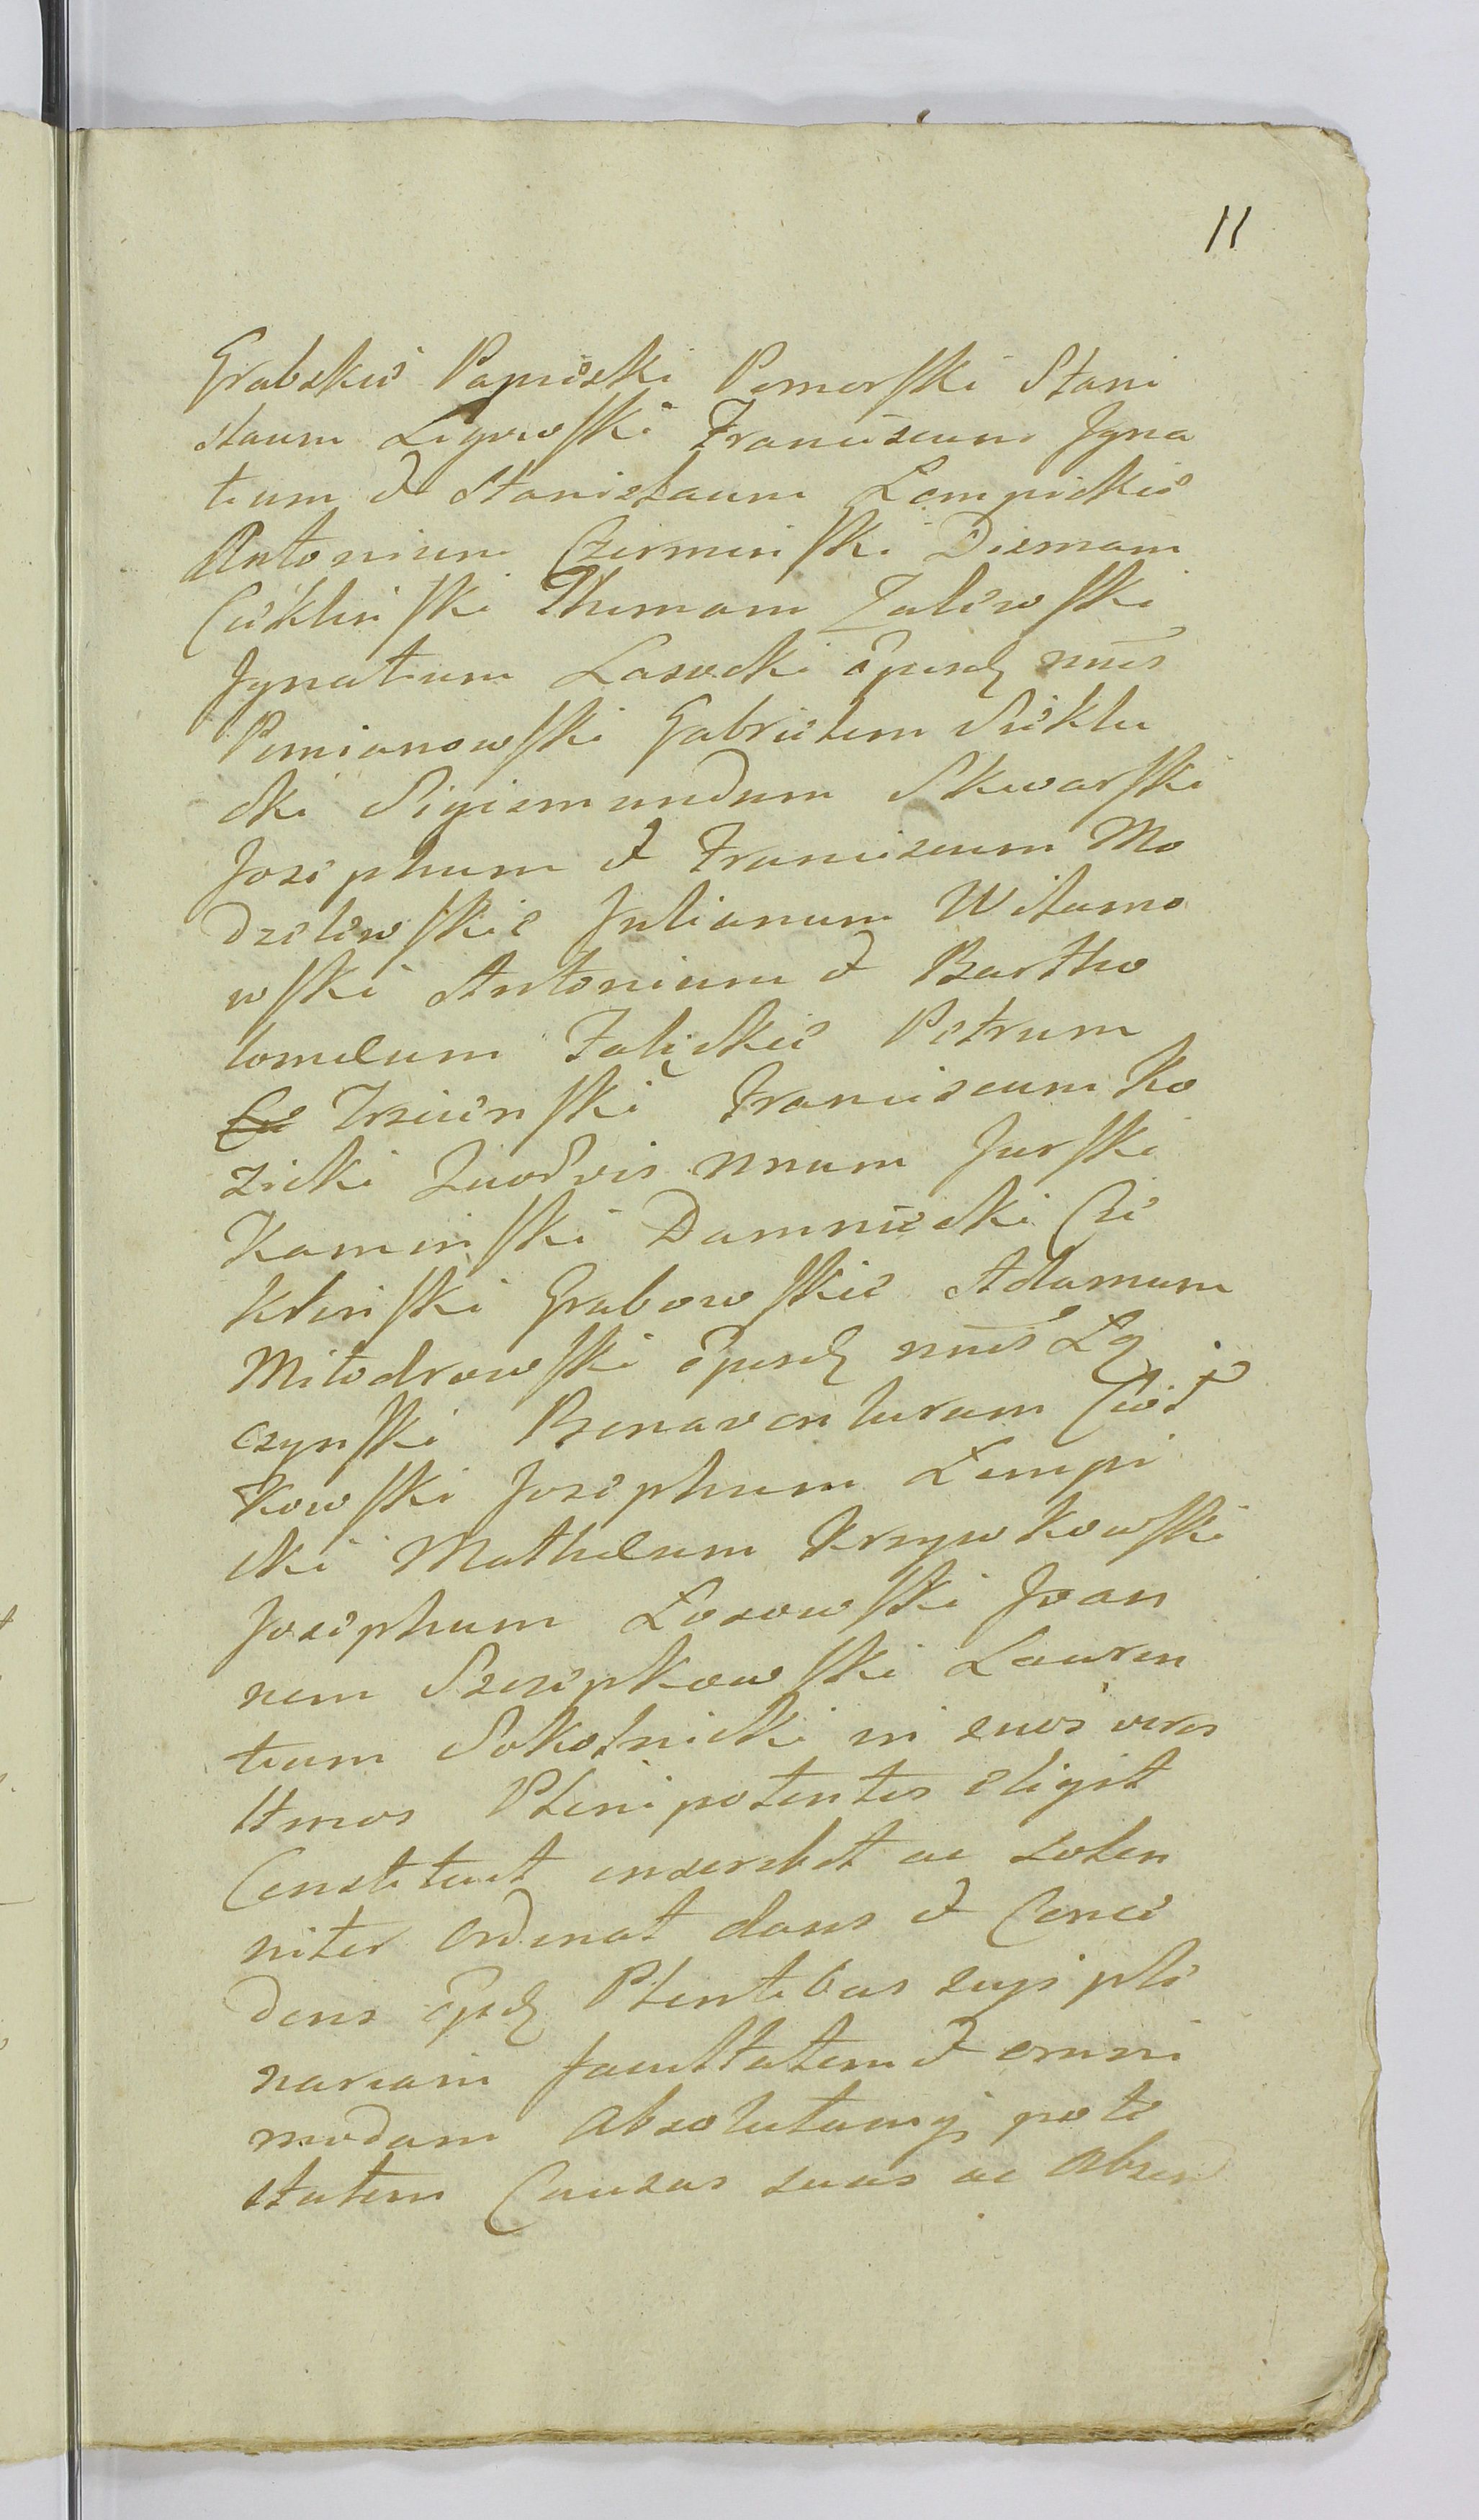 11
Grabskie Papieski Pomorski Stani
slaum Ligowski Franciscum Igna
tium et Stanislaum Lempickie
Antonium Czerminski Dismam
Cieklinski Thomam Zalewski
Ignatium Lasocki
Pomianowski Gabrielem Sieklu
cki Sigismundum Skwarski
Josephum et Franciscum Mo
dzelewskie Julianum Witamo
wski Antonium et Bartho
lomeum Falęckie Petrum
Trzcienski Franciscum Ko
zicki Quodvis unum Jurski
Kaminski Damniecki Cie
klinski Grabowskie Adamum
Milodrowski Łą
czynski Bonaventuram Ciod
kowski Josephum Lempi
cki Matheum Krzywkowski
Josephum Łosowski Joan
nem Szczepkowski Lauren
tium Sokolnicki in suos veros
Ltmos Plenipotentes eligit
Constituit inscribit ac solen
niter Ordinat dans et Conce
dens Plentibus suis ple
nariam facultatem et omni
modam absolutamq pote
statem Causas suas ac Absen